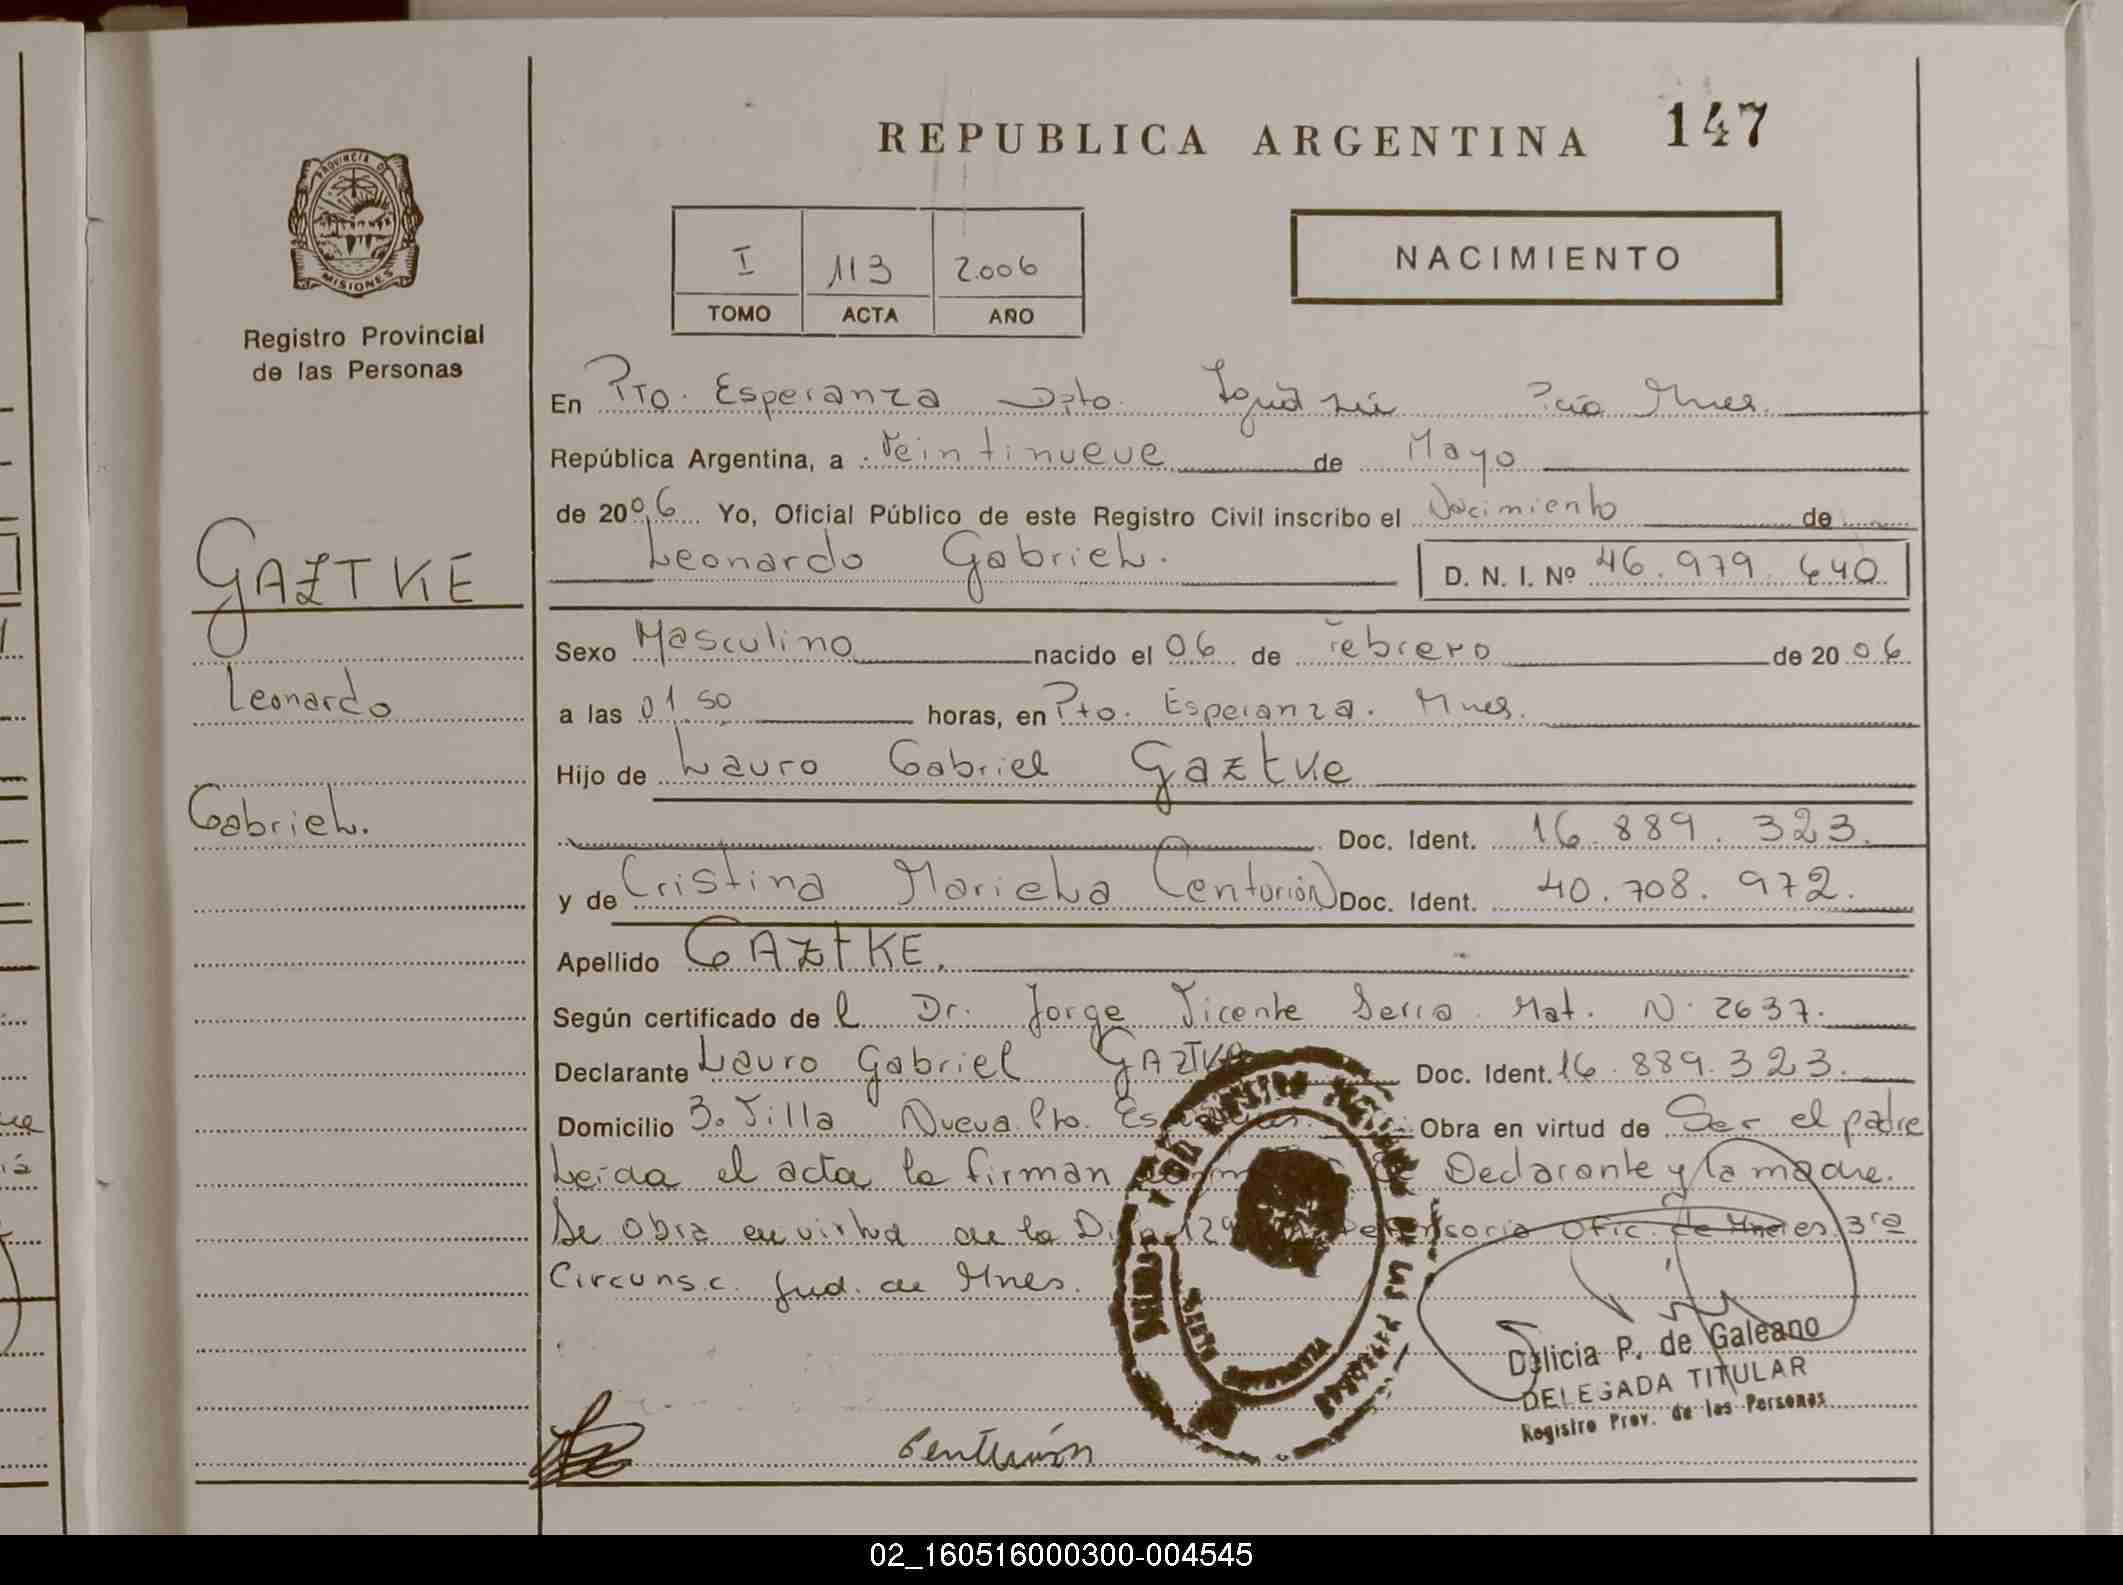 REPUBLICA ARGENTINA 147
PROVINCIA DE
MISIONES
Registro Provincial
de las Personas
I 113 2.006
TOMO ACTA AÑO
NACIMIENTO
En Pto. Esperanza Dpto. Iguazú Pcia Mnes.
República Argentina, a Veintinueve de Mayo
de 2006 Yo, Oficial Público de este Registro Civil inscribo el Nacimiento de
Leonardo Gabriel.
D. N. I. Nº 46.979.640
GAZTKE
Leonardo
Gabriel.
Sexo Masculino nacido el 06 de Febrero de 2006
a las 01.50 horas, en Pto. Esperanza. Mnes.
Hijo de Lauro Gabriel Gaztke
Doc. Ident. 16.889.323.
y de Cristina Mariela Centurión Doc. Ident. 40.708.972.
Apellido GAZtKE.
Según certificado de l Dr. Jorge Vicente Serra Mat. N. 2637.
Declarante Lauro Gabriel GAZTKe Doc. Ident. 16.889.323.
Domicilio 3. Villa Nueva. Pto. Obra en virtud de Ser el padre
Leida el acta la firman Declarante y la madre.
Se obra en virtud de la Ofic. de Mnes 3ra
Circunsc. Jud. de Mnes.
Centurión
Delicia P. de Galeano
DELEGADA TITULAR
Registro Prov. de las Personas
02_160516000300-004545